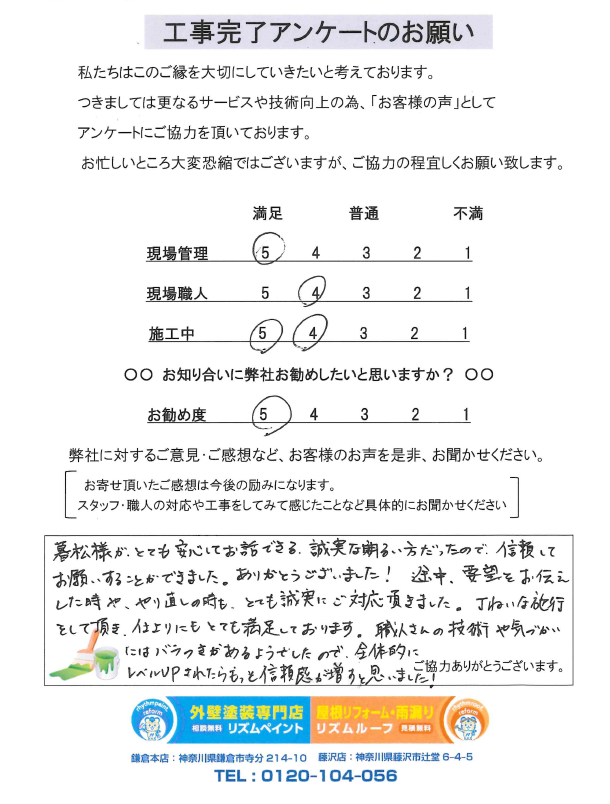 工事完了アンケートのお願い
私たちはこのご縁を大切にしていきたいと考えております。
つきましては更なるサービスや技術向上の為、「お客様の声」として
アンケートにご協力を頂いております。
お忙しいところ大変恐縮ではございますが、ご協力の程宜しくお願い致します。
満足 普通 不満
現場管理 5 4 3 2 1
現場職人 5 4 3 2 1
施工中 5 4 3 2 1
○○ お知り合いに弊社お勧めしたいと思いますか? ○○
お勧め度 5 4 3 2 1
弊社に対するご意見・ご感想など、お客様のお声を是非、お聞かせください。
お寄せ頂いたご感想は今後の励みになります。
スタッフ・職人の対応や工事をしてみて感じたことなど具体的にお聞かせください
様が、とても安心してお話できる、誠実な明るい方だったので、信頼して
お願いすることができました。ありがとうございました! 途中、要望をお伝え
した時や、やり直しの時も、とても誠実にご対応頂きました。丁ねいな施行
をして頂き、仕上りにもとても満足しております。職人さんの技術や気づかい
にはバラつきがあるようでしたので、全体的に
レベルUPされたらもっと信頼感が増すと思いました!
ご協力ありがとうございます。
rhythmpaint reform
外壁塗装専門店
相談無料 リズムペイント
屋根リフォーム・雨漏り
リズムルーフ 見積無料
鎌倉本店:神奈川県鎌倉市寺分 214-10 藤沢店:神奈川県藤沢市辻堂 6-4-5
TEL:0120-104-056